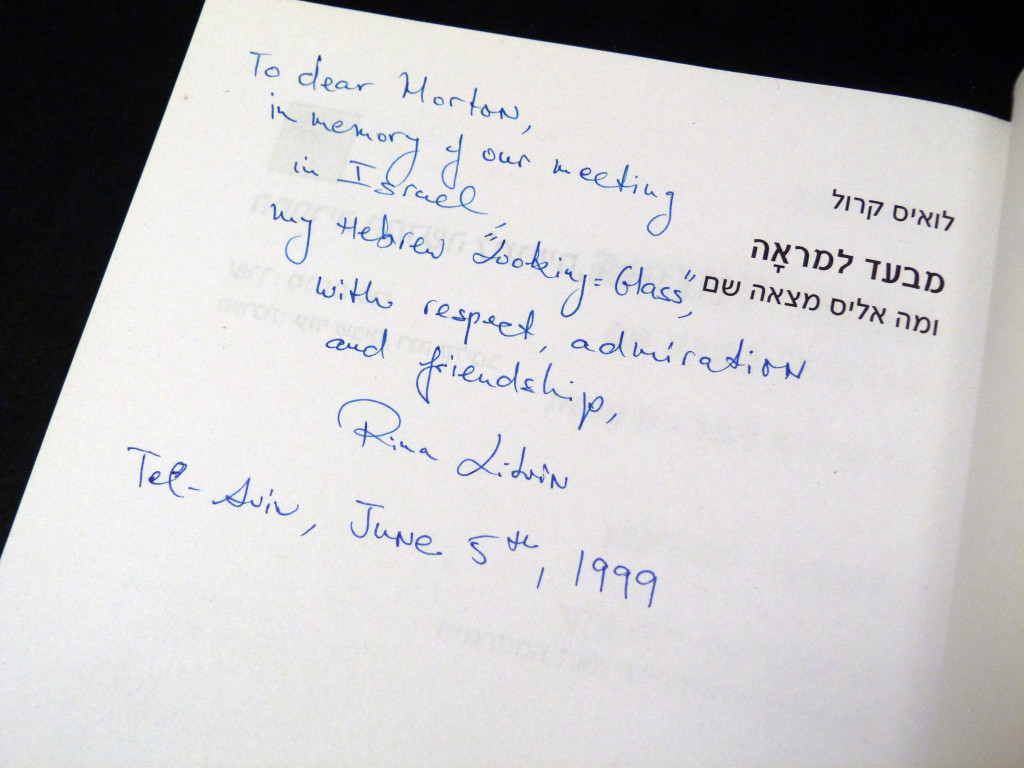 To dear Morton,
in memory of our meeting
in Israel,
my Hebrew "Looking=Glass",
with respect, admiration
and friendship,
Rina Litvin
Tel-Aviv, June 5th, 1999
לואיס קרול
מבעד למראָה
ומה אליס מצאה שם